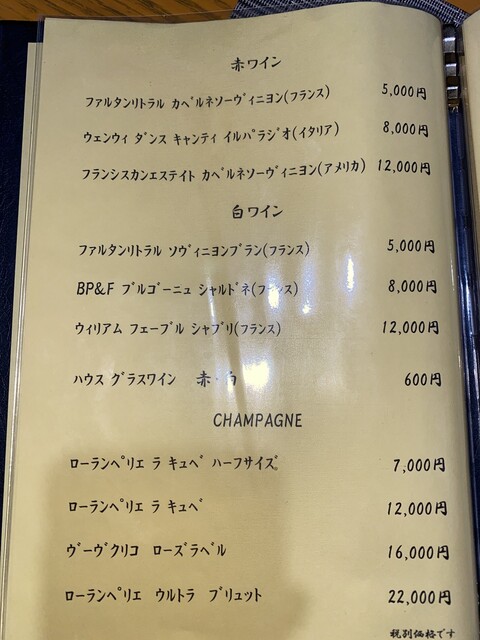 赤ワイン
ファルタンリトラル カベルネソーヴィニヨン(フランス) 5,000円
ウェンウィ ダンス キャンティ イルパラジオ(イタリア) 8,000円
フランシスカンエステイト カベルネソーヴィニヨン(アメリカ) 12,000円
白ワイン
ファルタンリトラル ソヴィニヨンブラン(フランス) 5,000円
BP&F ブルゴーニュ シャルドネ(フランス) 8,000円
ウィリアム フェーブル シャブリ(フランス) 12,000円
ハウス グラスワイン 赤・白 600円
CHAMPAGNE
ローランペリエ ラ キュベ ハーフサイズ 7,000円
ローランペリエ ラ キュベ 12,000円
ヴーヴクリコ ローズラベル 16,000円
ローランペリエ ウルトラ ブリュット 22,000円
税別価格です